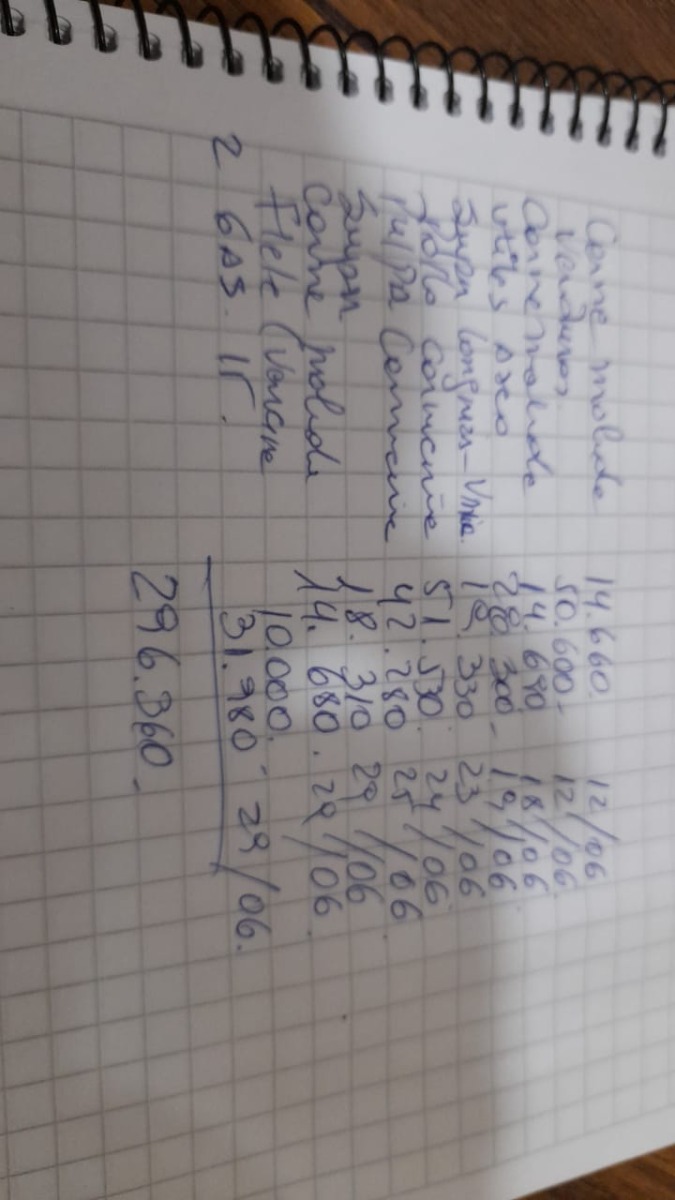 Carne molida 14.660. 12/06
Verduras. 50.600- 12/06.
Carne molida 14.690 18/06
útiles aseo 28.300- 19/06
19.330 23/06
Pollo Carnicería 51.530. 24/06.
Pulpa Carnicería 42.280 25/06
18.310 29/06
Carne molida 14.680. 29/06.
Flete (Vacune 10.000.
2 GAS. 15. 31.980- 29/06.
296.360.